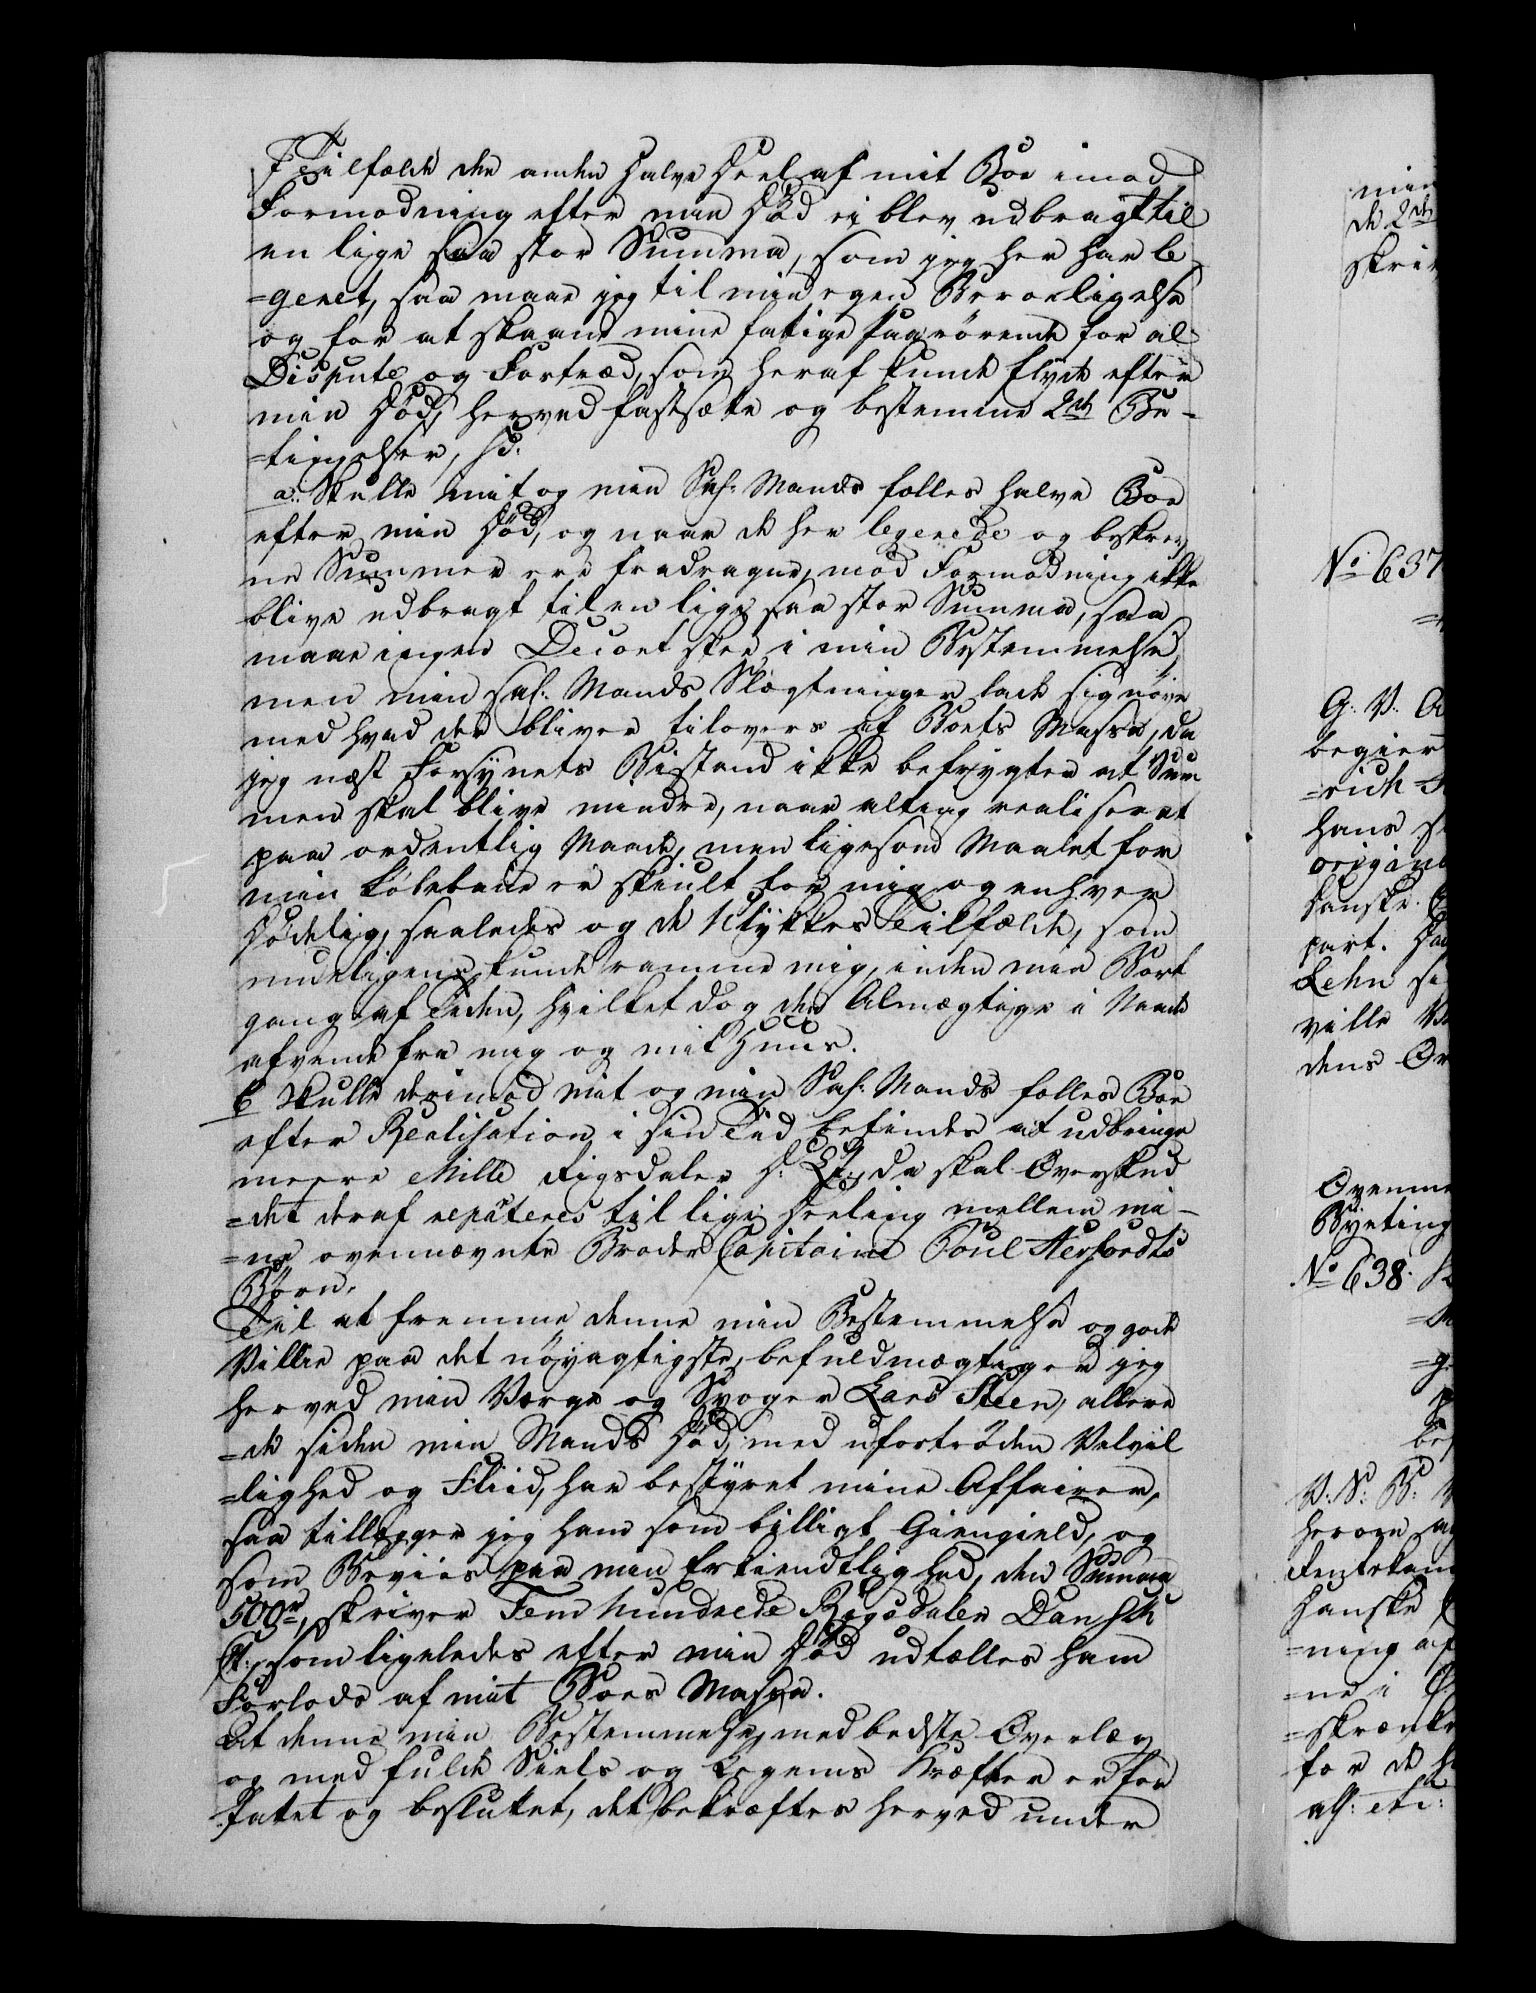 I Tilfælde den anden halve Deel af mit Boe imod
Formodning efter min Død ei blev udbragt til
en lige saa stor Summa, som jeg her har le
=geret, saa maae jeg til min egen Beroeligelse
og for at skaane mine fattige Paarørende for al
Dispute og Fortræd, som heraf kunde flyde efter
min Død, herved fastsætte og bestemme 2de Be-
=tingelser,
a: Skulle mit og min Sal: Mands fælles halve Boe
efter min Død, og naar de her legerede og beskrev
ne Summer ere fradragne, mod Formodning ikke
blive udbragt til en lige saa stor Summa, saa
maae ingen Decort skee i min Bestemmelse,
men min sal. Mands Slægtninger lade sig nøie
med hvad der bliver tilovers af Boets Massa, da
jeg næst Forsynets Bistand ikke befrygter at Sum
men skal blive mindre, naar alting realiseret
paa ordentlig Maade, men ligesom Maalet for
min Løbebane er skiult for mig og enhver
Dødelig, saaledes og de Ulykkes Tilfælde, som
mueligens kunde ramme mig, inden min Bort
gang af Tiden, hvilket dog den Almægtige i Naade
afvende fra mig og mit Huus.
b Skulle derimod mit og min Sal: Mands fælles Boe
efter Realisation i sin Tid befindes at udbringe
meere Mille Rigsdaler D: Ct:, da skal Overskud
=det deraf reparteres til lige Deeling mellem mi-
=ne ovennævnte Broder Capitaine Poul Herfordts
Børn.
Til at fremme denne min Bestemmelse og gode
Villie paa det nøyagtigste, befuldmægtiger jeg
herved min Værge og Svoger Lars Steen, allere
=de siden min Mands Død, med ufortrøden Velvil
=lighed og Fliid, har bestyret mine Affairer,
saa tillægger jeg ham som billigt Giengield, og
som Beviis paa min Erkiendtlighed, den Summa
500rd, skriver Fem hundrede Rigsdaler Dansk
Ct:, som ligeledes efter min Død udtælles ham
Forlods af mit Boes Massa.
At denne min Bestemmelse, med bedste Overlæg
og med fulde Siels og Legems Kræfter er for
fatet og besluttet, det bekræftes herved under
min
de 2de
skri
No 637
G: V: A
begier
=rich
hans
origin
danske
part.
Lehn
ville
dens
Ovenme
Byeting
No 638.
V: N: B:
herom
Rentekam
danske
=ning af
=ne i
=skrænke
for de
alf: etc: